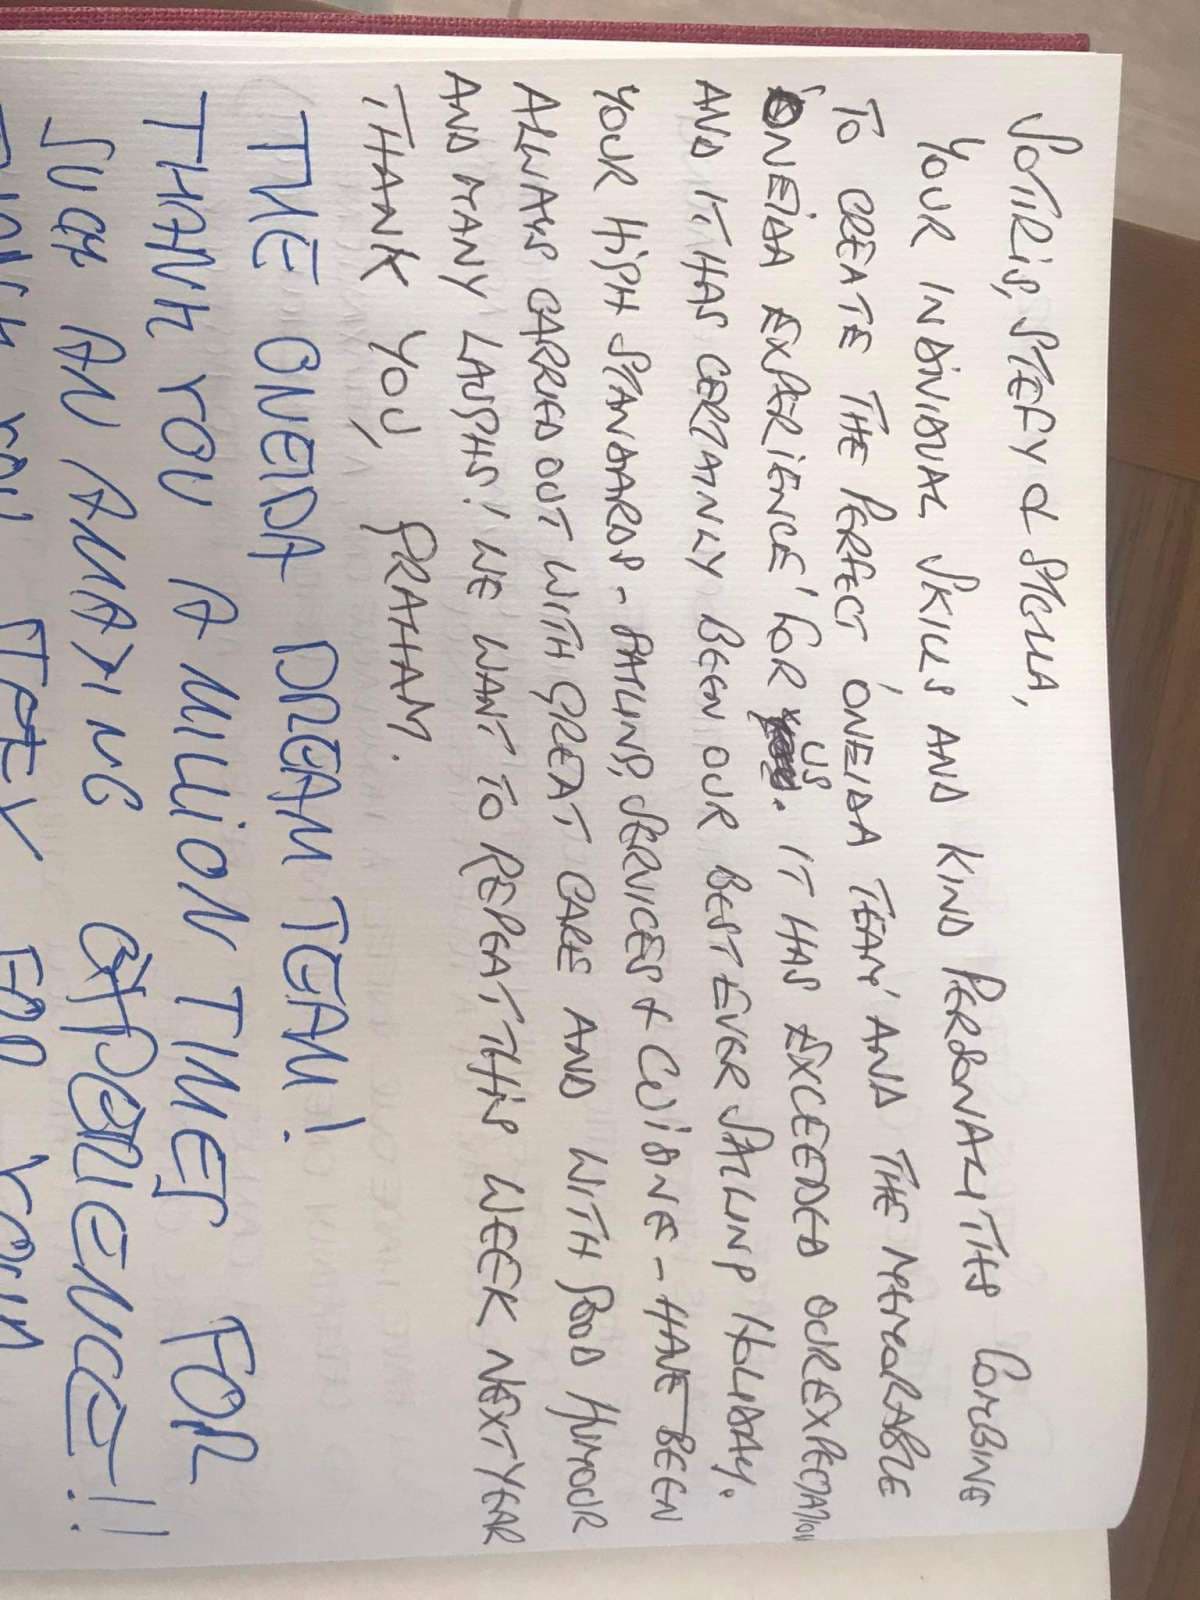 SOTIRIS, STEFY & STELLA,
YOUR INDIVIDUAL SKILLS AND KIND PERSONALITIES COMBINE
TO CREATE THE PERFECT 'ONEIDA TEAM' AND THE MEMORABLE
'ONEIDA EXPERIENCE' FOR US. IT HAS EXCEEDED OUR EXPECTATION
AND IT HAS CERTAINLY BEEN OUR BEST EVER SAILING HOLIDAY.
YOUR HIGH STANDARDS - SAILING, SERVICES & CUISINE - HAVE BEEN
ALWAYS CARRIED OUT WITH GREAT CARE AND WITH GOOD HUMOUR
AND MANY LAUGHS! WE WANT TO REPEAT THIS WEEK NEXT YEAR
THANK YOU, GRAHAM.
THE ONEIDA DREAM TEAM!
THANK YOU A MILLION TIMES FOR
SUCH AN AMAZING EXPERIENCE!!
FOR YOUR